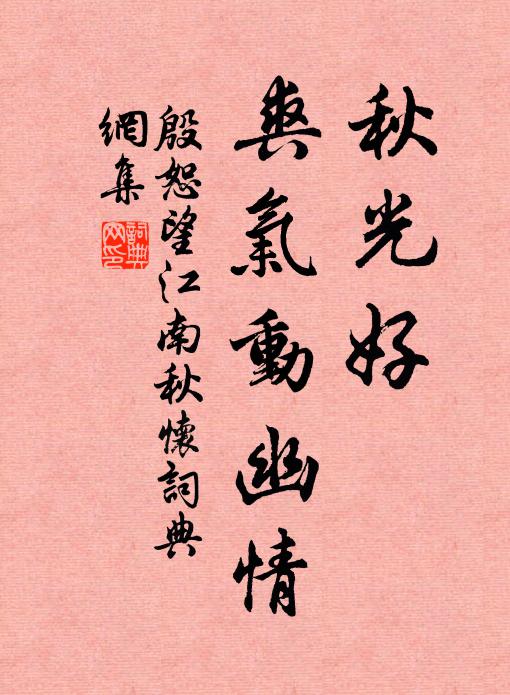 秋光好
爽氣動幽情
殷恕望江南秋懷詞典
網集
詞典
网印